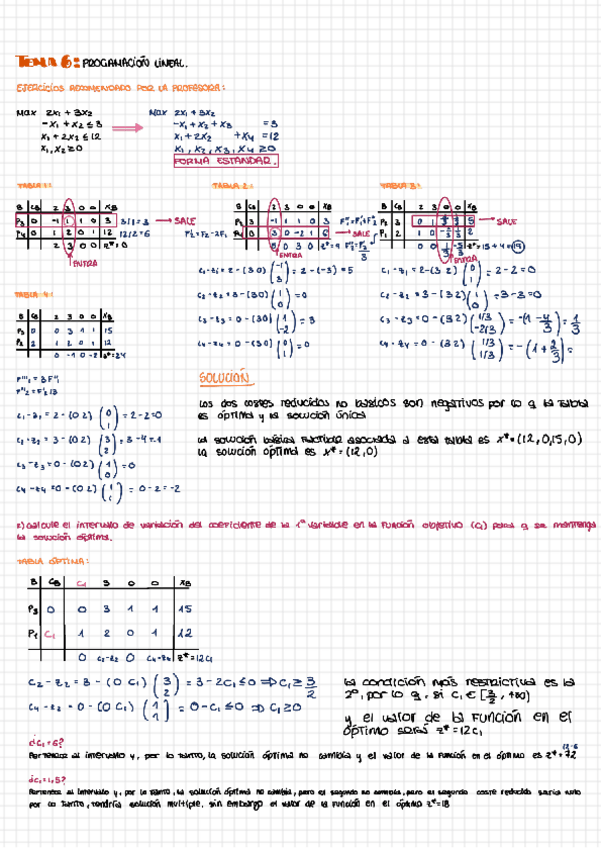 TEMA 6: PROGAMACIÓN LINEAL.
EJERCICIOS RECOMENDADO POR LA PROFESORA:
MAX 2x1 + 3x2
-x1 + x2 ≤ 3
x1 + 2x2 ≤ 12
x1, x2 ≥ 0
MAX 2x1 + 3x2
-x1 + x2 + x3 = 3
x1 + 2x2 + x4 = 12
x1, x2, x3, x4 ≥ 0
FORMA ESTANDAR.
TABLA 1:
B CB 2 3 0 0 XB
P3 0 -1 1 1 0 3 3/1 = 3 → SALE
P4 0 1 2 0 1 12 12/2 = 6
2 3 0 0 z* = 0
ENTRA
F'2 = F2 - 2F1
TABLA 2:
B CB 2 3 0 0 XB
P2 3 -1 1 1 0 3
P4 0 3 0 -2 1 6 → SALE
5 0 3 0 z* = 9
ENTRA
c1 - z1 = 2 - (3 0) (-1 3) = 2 - (-3) = 5
c2 - z2 = 3 - (3 0) (1 0) = 0
c3 - z3 = 0 - (3 0) (1 -2) = 3
c4 - z4 = 0 - (3 0) (0 1) = 0
TABLA 3:
B CB 2 3 0 0 XB
P2 3 0 1 1/3 1/3 5 → SALE
P1 2 1 0
z* = 15 + 4 = 19
ENTRA
c1 - z1 = 2 - (3 2) (0 1) = 2 - 2 = 0
c2 - z2 = 3 - (3 2) (1 0) = 3 - 3 = 0
c3 - z3 = 0 - (3 2) (1/3 -2/3) = -(1 - 4/3) = 1/3
c4 - z4 = 0 - (3 2) (1/3 1/3) = -(1 + 2/3) =
TABLA 4:
B CB 2 3 0 0 XB
P3 0 0 3 1 1 15
P1 2 1 2 0 1 12
0 -1 0 -2 z* = 24
F'''1 = 3F''1
c1 - z1 = 2 - (0 2) (0 1) = 2 - 2 = 0
c2 - z2 = 3 - (0 2) (3 2) = 3 - 4 = -1
c3 - z3 = 0 - (0 2) (1 0) = 0
c4 - z4 = 0 - (0 2) (1 1) = 0 - 2 = -2
SOLUCIÓN
Los dos costes reducidos no basicos son negativos por lo q la tabla
es óptima y la solución única
La solución basica factible asociada a esta tabla es x* = (12, 0, 15, 0)
La solución óptima es x* = (12, 0)
Calcule el intervalo de variación del coeficiente de la 1ª variable en la función objetivo (c1) para q se mantenga
la solución óptima.
TABLA ÓPTIMA:
B CB C1 3 0 0 XB
P3 0 0 3 1 1 15
P1 C1 1 2 0 1 12
0 c2-z2 0 c4-z4 z* = 12c1
c2 - z2 = 3 - (0 c1) (3 2) = 3 - 2c1 ≤ 0 ⇒ c1 ≥ 3/2
c4 - z4 = 0 - (0 c1) (1 1) = 0 - c1 ≤ 0 ⇒ c1 ≥ 0
La condición más restrictiva es la
2º, por lo q, si c1 ∈ [3/2, +∞)
y el valor de la función en el
óptimo será z* = 12c1
¿c1 = 6?
Pertenece al intervalo y, por lo tanto, la solución óptima no cambia y el valor de la función en el óptimo es z* = 72
12·6
¿c1 = 1,5?
Pertenece al intervalo y, por lo tanto, la solución óptima no cambia, pero el segundo no cambia, pero el segundo coste reducido sería nulo
por lo tanto, tendría solución multiple, sin embargo el valor de la función en el óptimo z* = 18